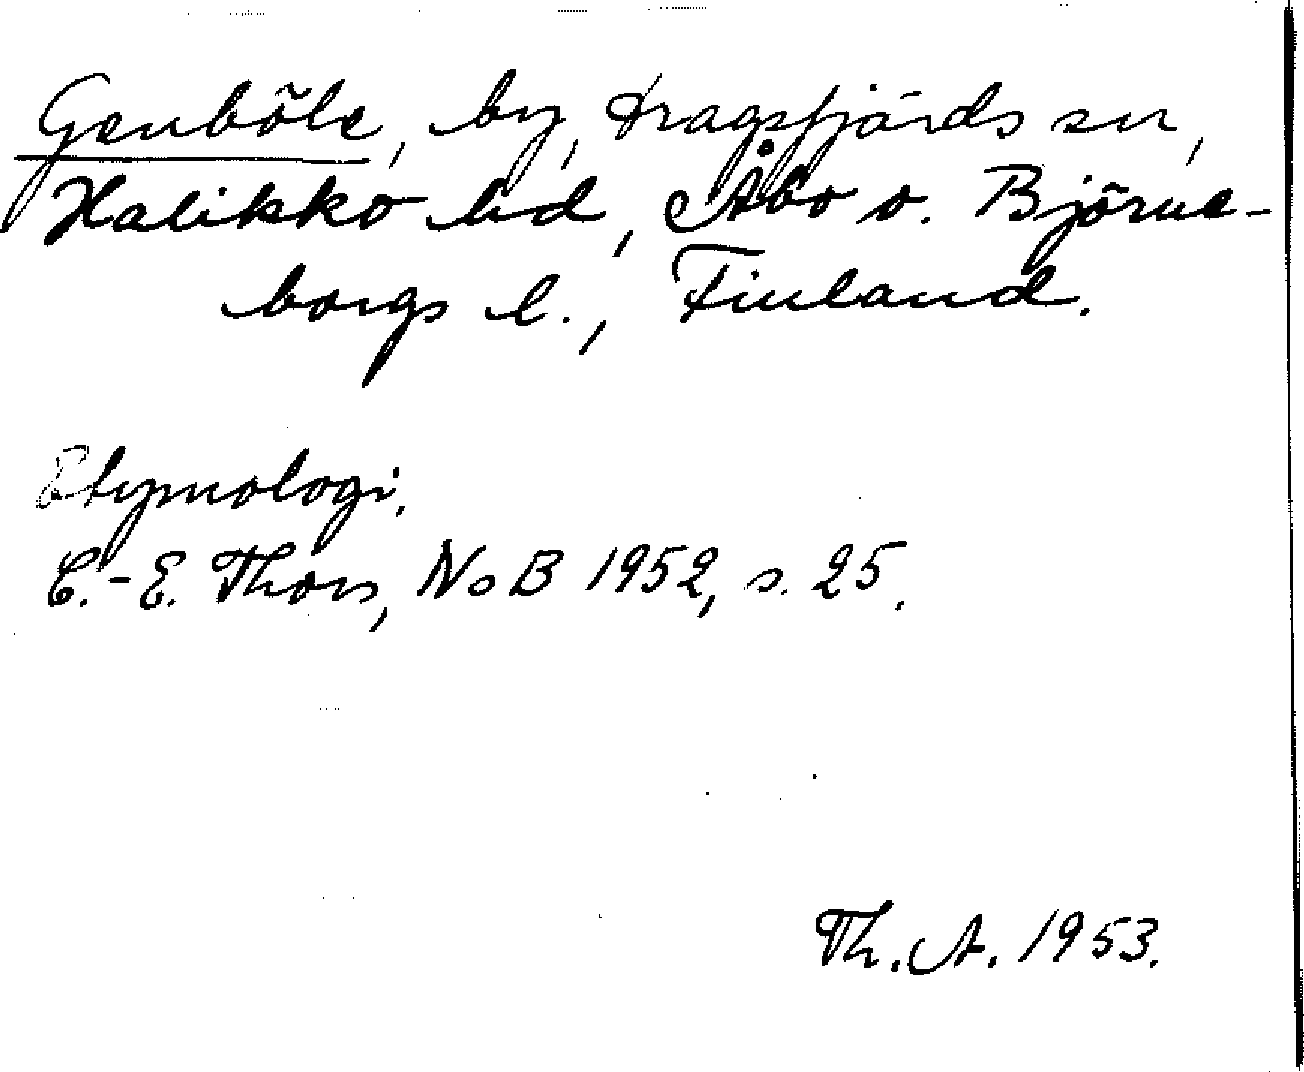 Genböle, by, Dragsfjärds sn,
Halikko hd, Åbo o. Björne-
borgs l., Finland.
Etymologi.
C.-E. Thors, NoB 1952, s. 25.
Th. A. 1953.